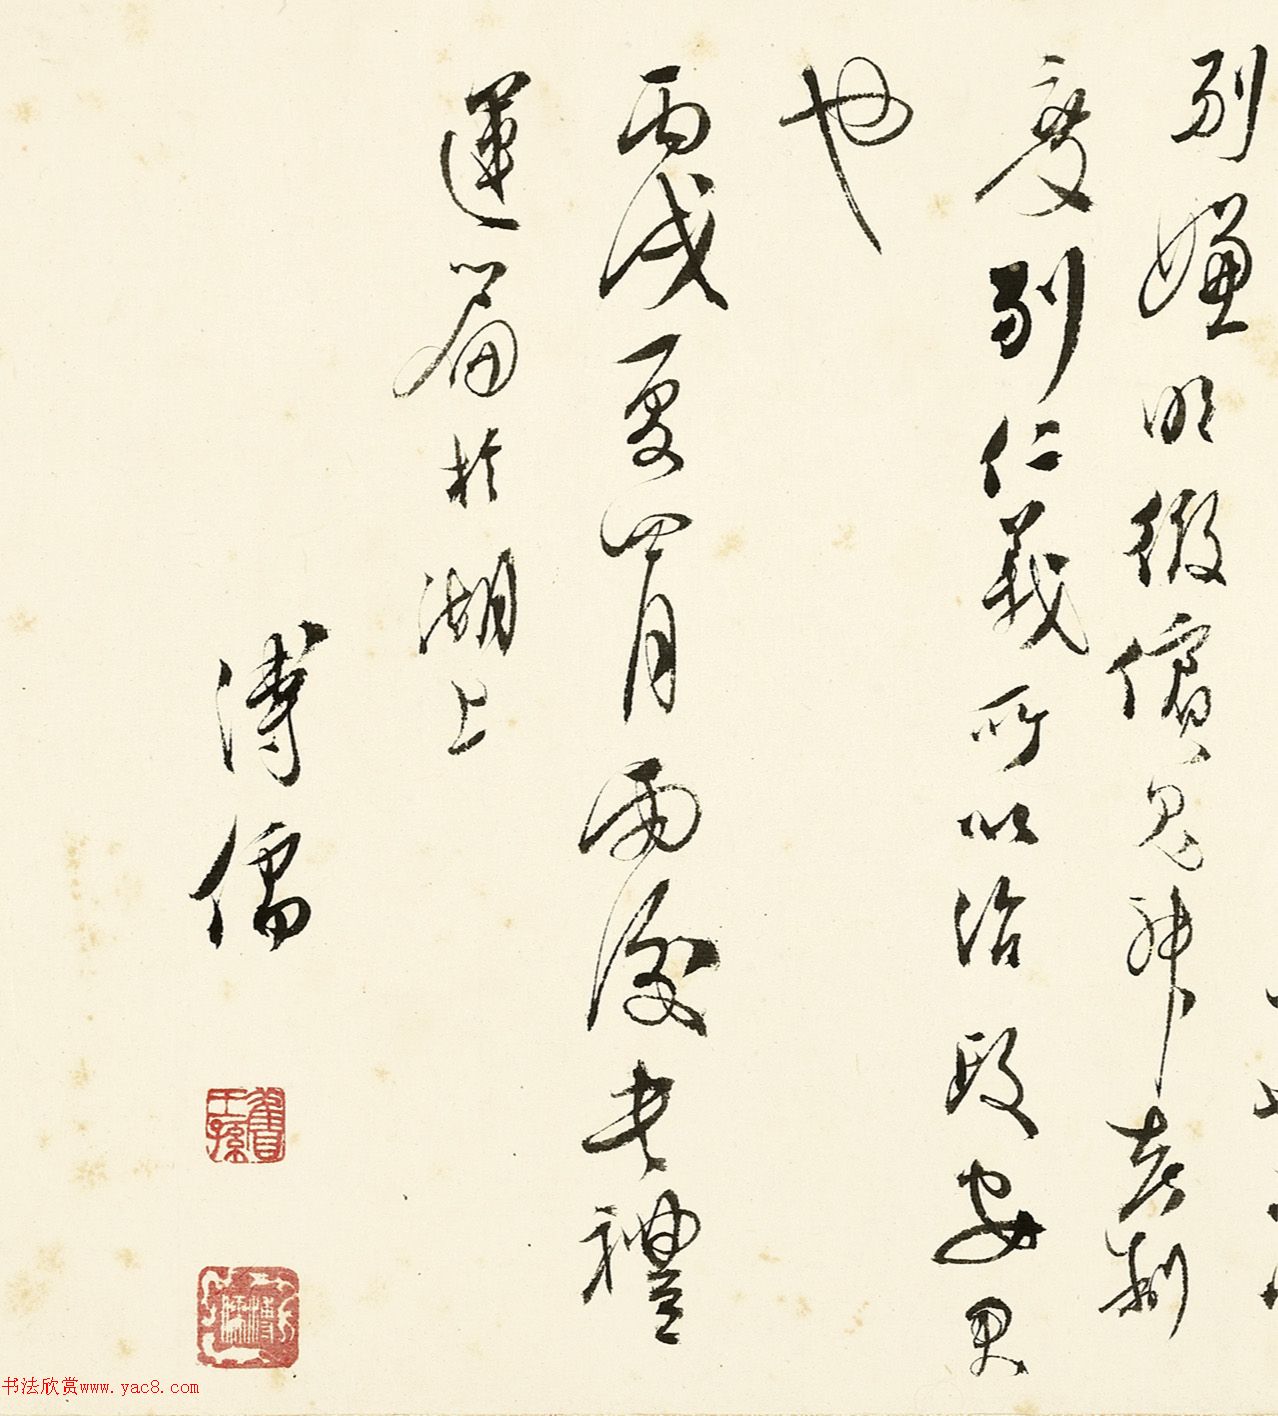 別嫌明微儐鬼神考制
度別仁義所以治政安君
也
丙戌夏四月雨後書禮
運篇於湖上
溥儒
舊王孫
溥儒
书法欣赏www.yac8.com